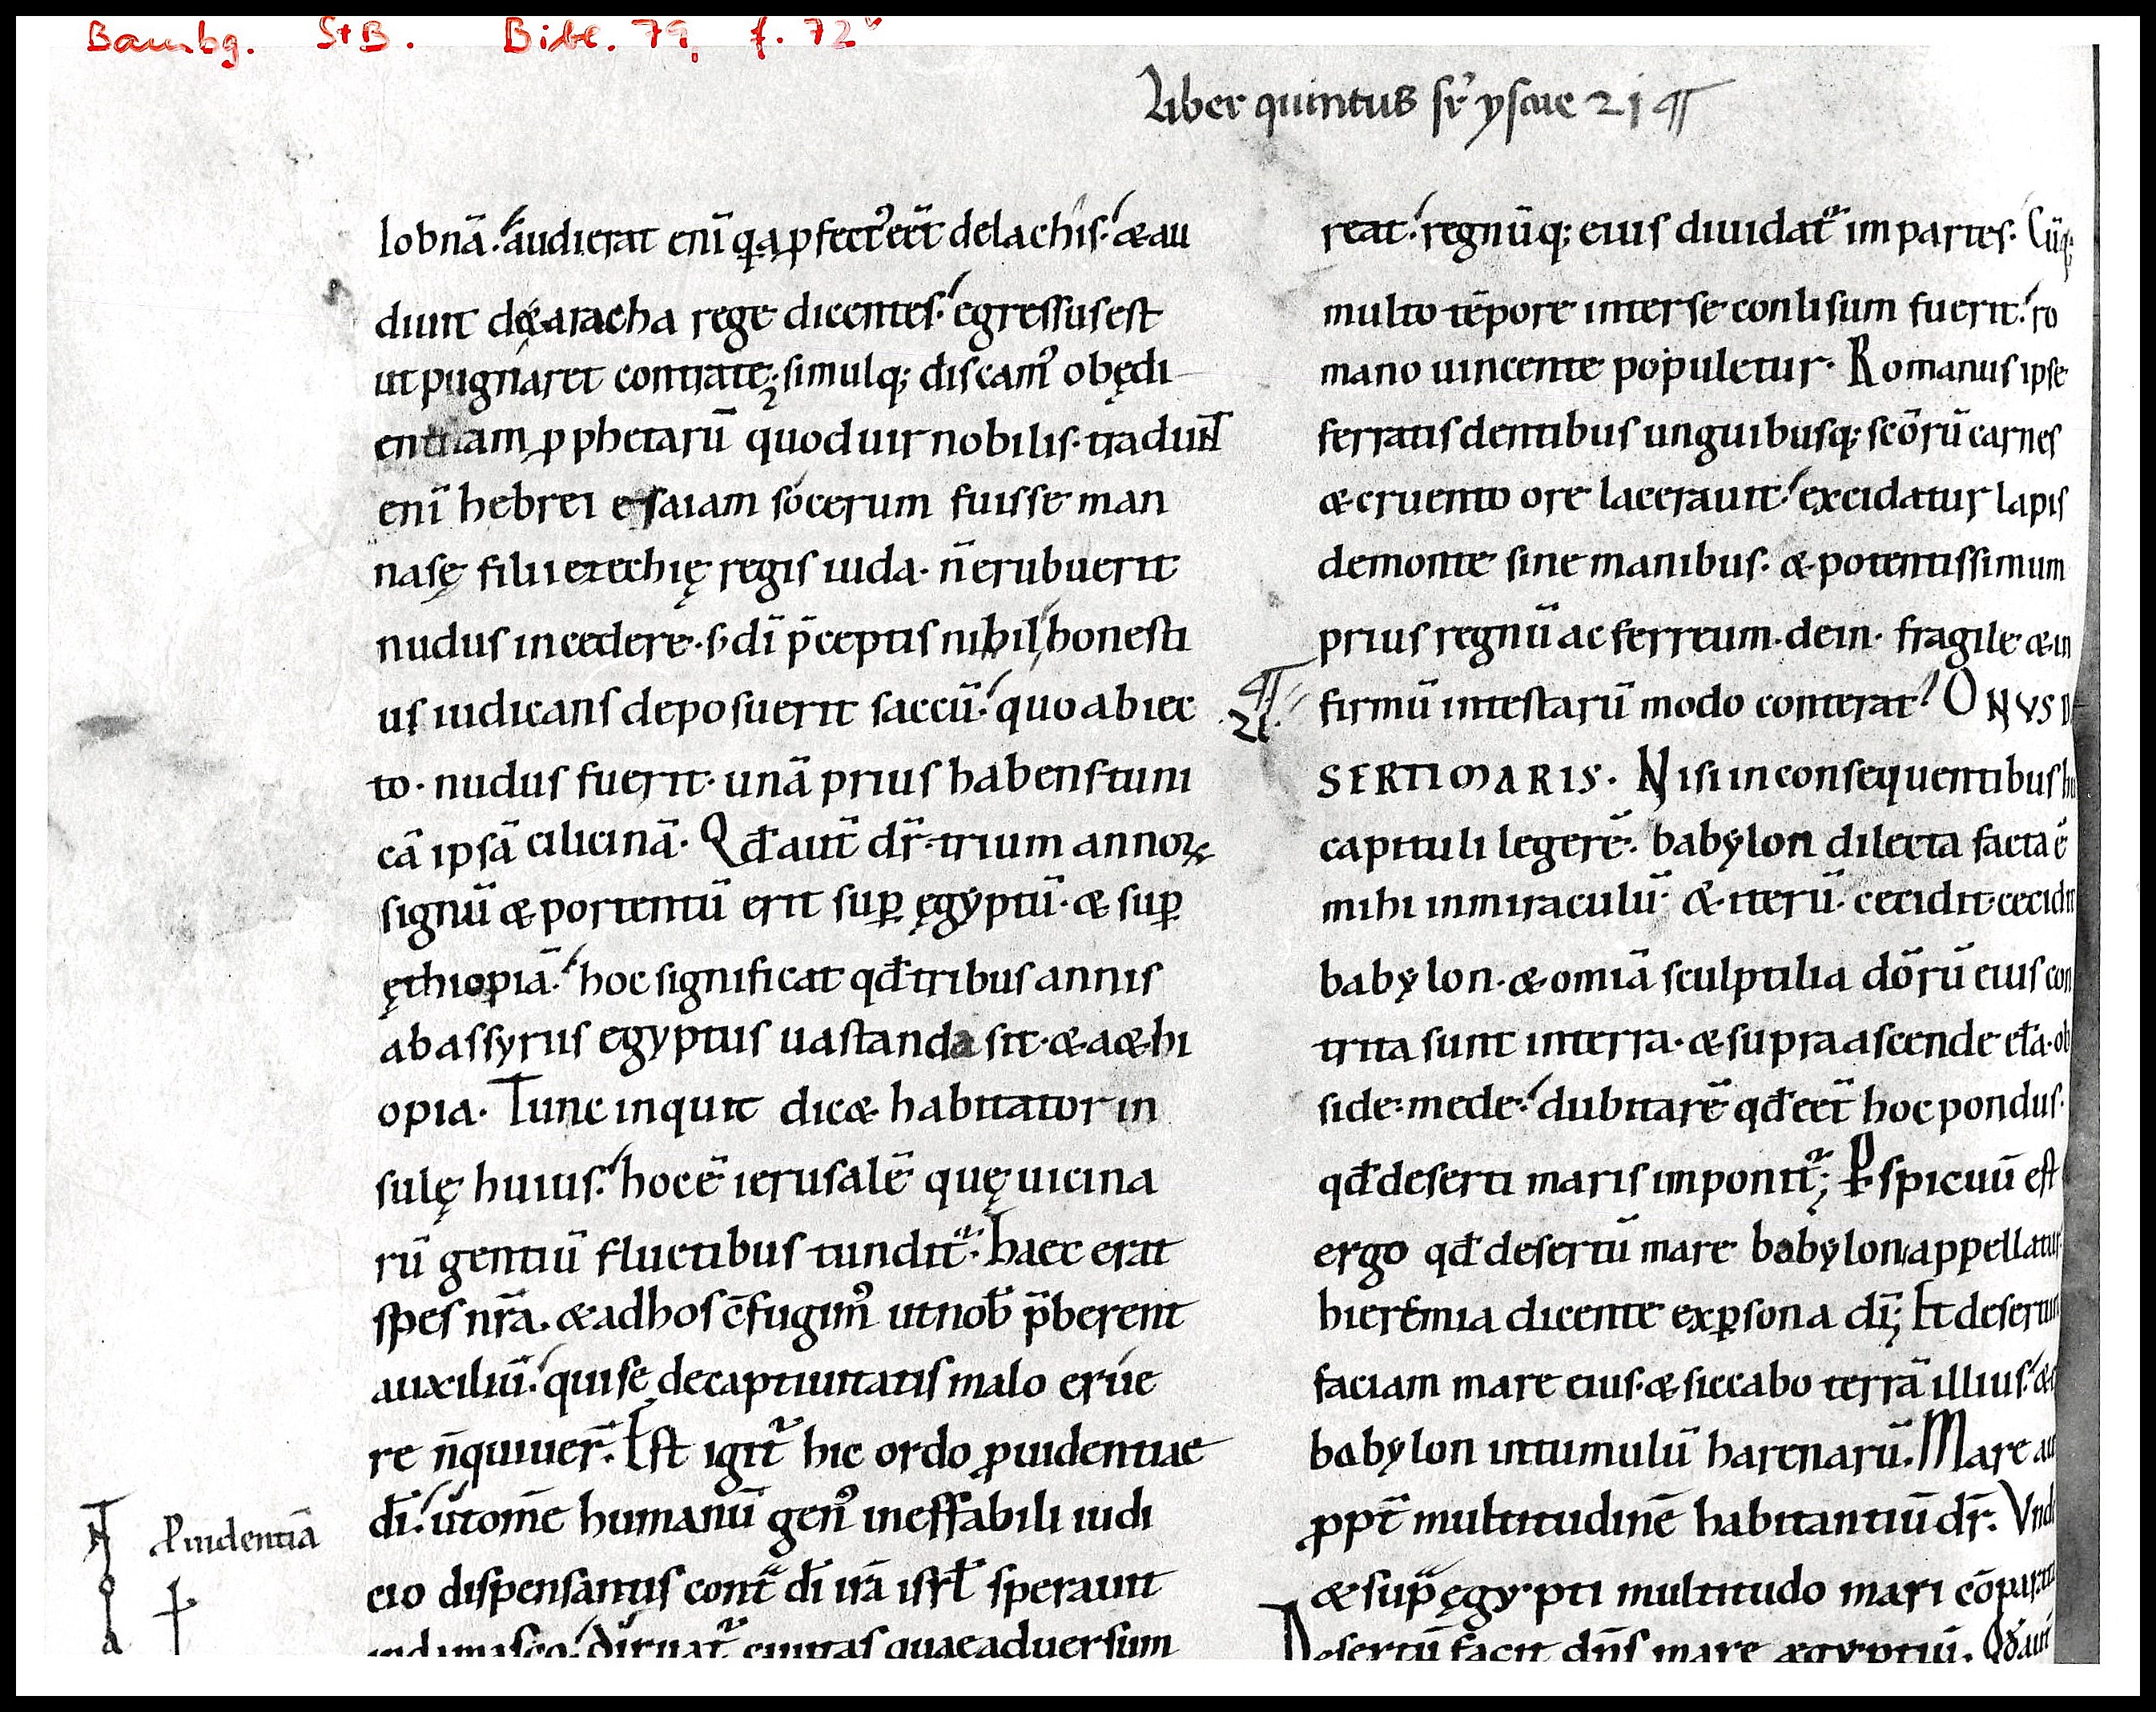 Bambg. StB. Bibl. 79, f. 72v
Liber quintus sr̄ ysaie 21 ¶
lobnā. audierat enī q̨a ꝓfect᾽ eēt delachis. & au
diunt de tharacha rege dicentes. egressus est
ut pugnaret contra te; simulq; discam᾽ obędi
entiam ꝓphetarū quod uir nobilis. tradunt
enī hebrei esaiam socerum fuisse man
nasę filii ezechię regis iuda. n̄ erubuerit
nudus incedere. s; dī p̄ceptis nihil honesti
us iudicans deposuerit saccū. quo abiec
to. nudus fuerit. unā prius habens tuni
cā ipsā cilicinā. Qđ aut̄ dr̄ trium annoꝝ
signū & portentū erit suꝑ ęgyptū. & suꝑ
ęthiopiā. hoc significat qđ tribus annis
ab assyriis egyptus uastanda sit. & aethi
opia. Tunc inquit dic& habitator in
sulę huius. hoc ē ierusalē quę uicina
rū gentiū fluctibus tundit᷑. haec erat
spes nr̄a. & ad hos c̄fugim᾽ ut nob̄ p̄berent
auxiliū. qui se de captiuitatis malo erue
re n̄ quiuer̄. Est igit᷑ hic ordo ꝓuidentiae
dī. ut om̄e humanū gen᾽ ineffabili iudi
cio dispensantis cont̄ dī irā isrł sperauit
in damasco. diruat᷑ ciuitas quae aduersum
Ꝓuidentiā
reat. regnūq; eius diuidat᷑ in partes. Cūq;
multo tēpore inter se conlisum fuerit. ro
mano uincente populetur. Romanus ipse
ferratis dentibus unguibusq; scōrū carnes
& cruento ore lacerauit. excidatur lapis
de monte sine manibus. & potentissimum
prius regnū ac ferreum. dein. fragile & in
¶ 21.
firmū in testarū modo conterat. ONUS DE
SERTI MARIS. Nisi in consequentibus hu
capituli legerē. babylon dilecta facta ē
mihi in miraculū. & iterū. cecidit cecidit
babylon. & omīa sculptilia dōrū eius con
trita sunt in terra. & supra ascende eła. ob
side mede. dubitarē qđ eēt hoc pondus.
qđ deserti maris imponit᷑; Ꝑspicuū est
ergo qđ desertū mare babylon appellatur
hieremia dicente ex ꝑsona dī; Et desertum
faciam mare eius. & siccabo terrā illius. &
babylon in tumulū harenarū. Mare au
ꝓpt̄ multitudinē habitantiū dr̄. Unde
& suꝑ ęgypti multitudo mari cōparat
Desertū facit dn̄s mare ægyptiū. Qđ aut̄